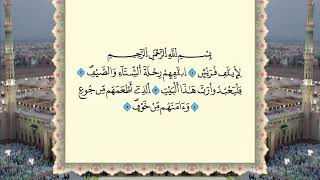 بِسْمِ اللَّهِ الرَّحْمَٰنِ الرَّحِيمِ
لِإِيلَٰفِ قُرَيْشٍ ۝ إِۦلَٰفِهِمْ رِحْلَةَ ٱلشِّتَآءِ وَٱلصَّيْفِ ۝
فَلْيَعْبُدُواْ رَبَّ هَٰذَا ٱلْبَيْتِ ۝ ٱلَّذِىٓ أَطْعَمَهُم مِّن جُوعٍ ۝
وَءَامَنَهُم مِّنْ خَوْفٍ ۝